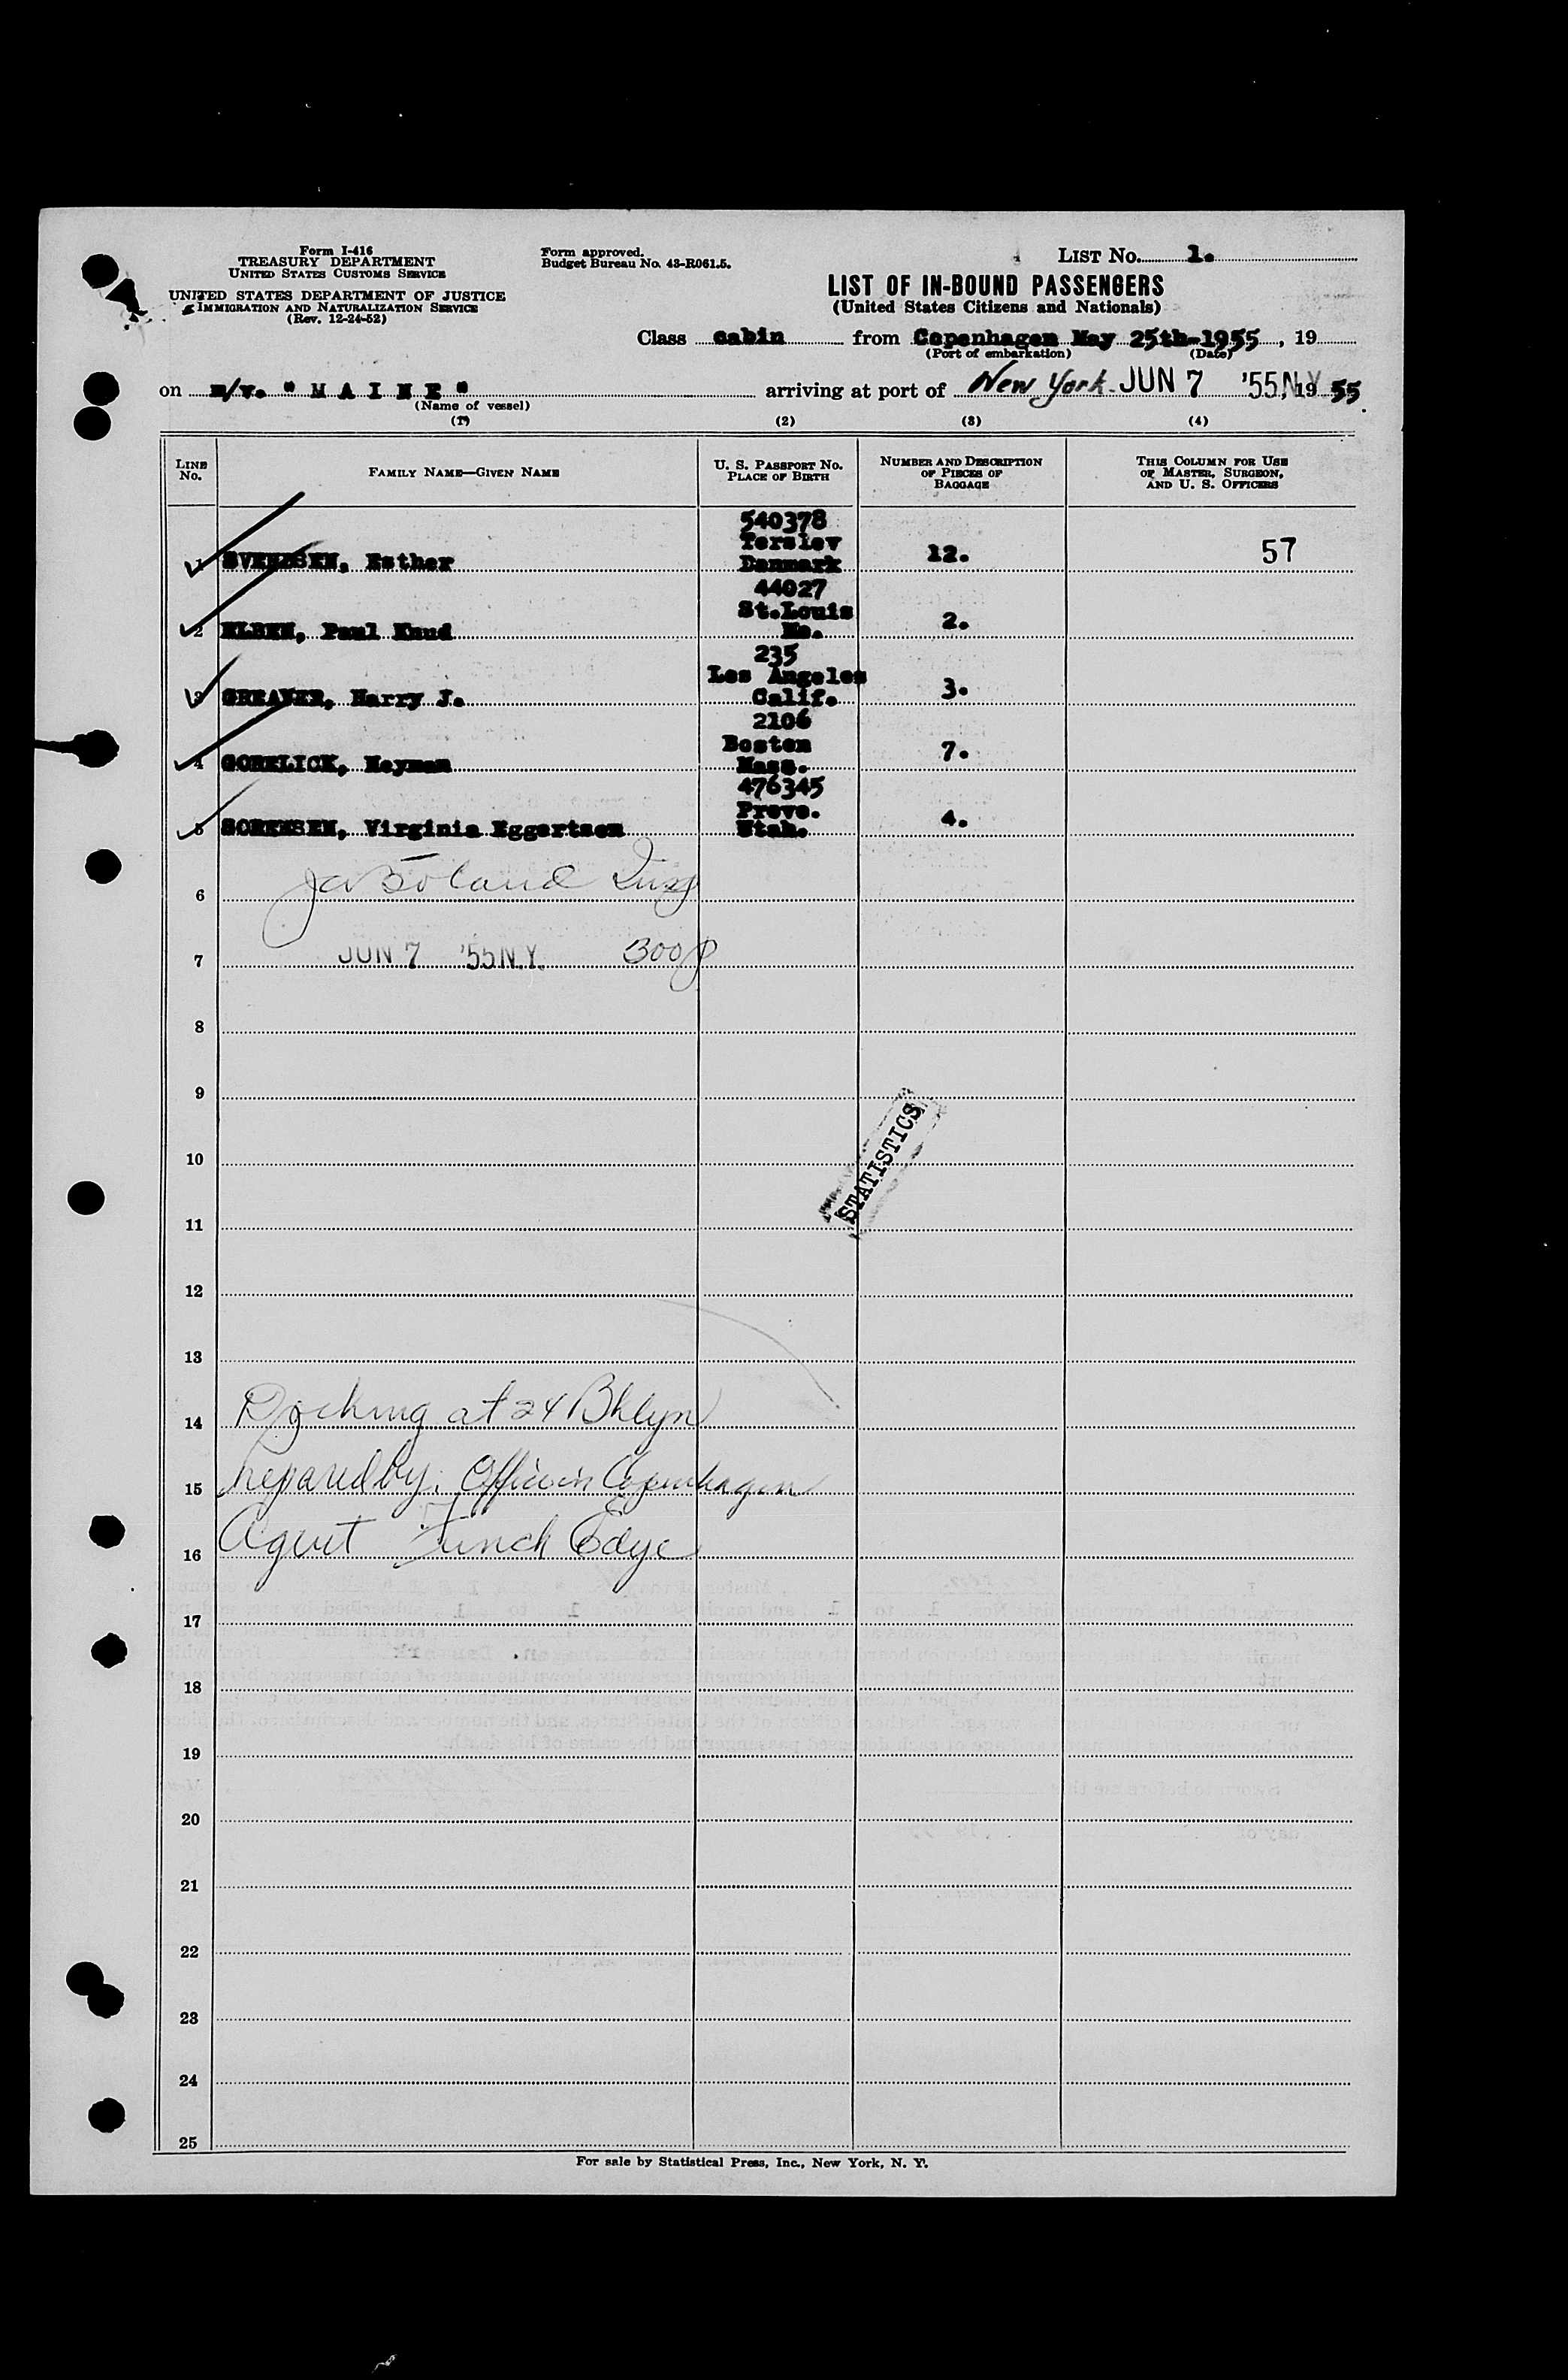 Form I-416
TREASURY DEPARTMENT
UNITED STATES CUSTOMS SERVICE
UNITED STATES DEPARTMENT OF JUSTICE
IMMIGRATION AND NATURALIZATION SERVICE
(Rev. 12-24-52)
Form approved.
Budget Bureau No. 43-R061.5.
LIST No. 1.
LIST OF IN-BOUND PASSENGERS
(United States Citizens and Nationals)
Class cabin from Copenhagen May 25th-1955, 19
(Port of embarkation) (Date)
on m/v. "M A I N E" arriving at port of New York JUN 7 '55 N.Y. 19 55
(Name of vessel)
(1) (2) (3) (4)
LINE No. FAMILY NAME—GIVEN NAME U. S. PASSPORT No. PLACE OF BIRTH NUMBER AND DESCRIPTION OF PIECES OF BAGGAGE THIS COLUMN FOR USE OF MASTER, SURGEON, AND U. S. OFFICERS
540378
Terslev
1 SVENDSEN, Esther Danmark 12. 57
44027
St.Louis
2 ELBEN, Paul Knud Mo. 2.
235
Los Angeles
3 GREANER, Harry J. Calif. 3.
2106
Boston
4 GORELICK, Heyman Mass. 7.
476345
Provo.
5 SORENSEN, Virginia Eggertsen Utah. 4.
6
7 JUN 7 '55 N.Y. 300 p
8
9
10
STATISTICS
11
12
13
14 Docking at 24 Bklyn
15 Prepared by: Office in Copenhagen
16 Agent Funch Edye
17
18
19
20
21
22
23
24
25
For sale by Statistical Press, Inc., New York, N. Y.